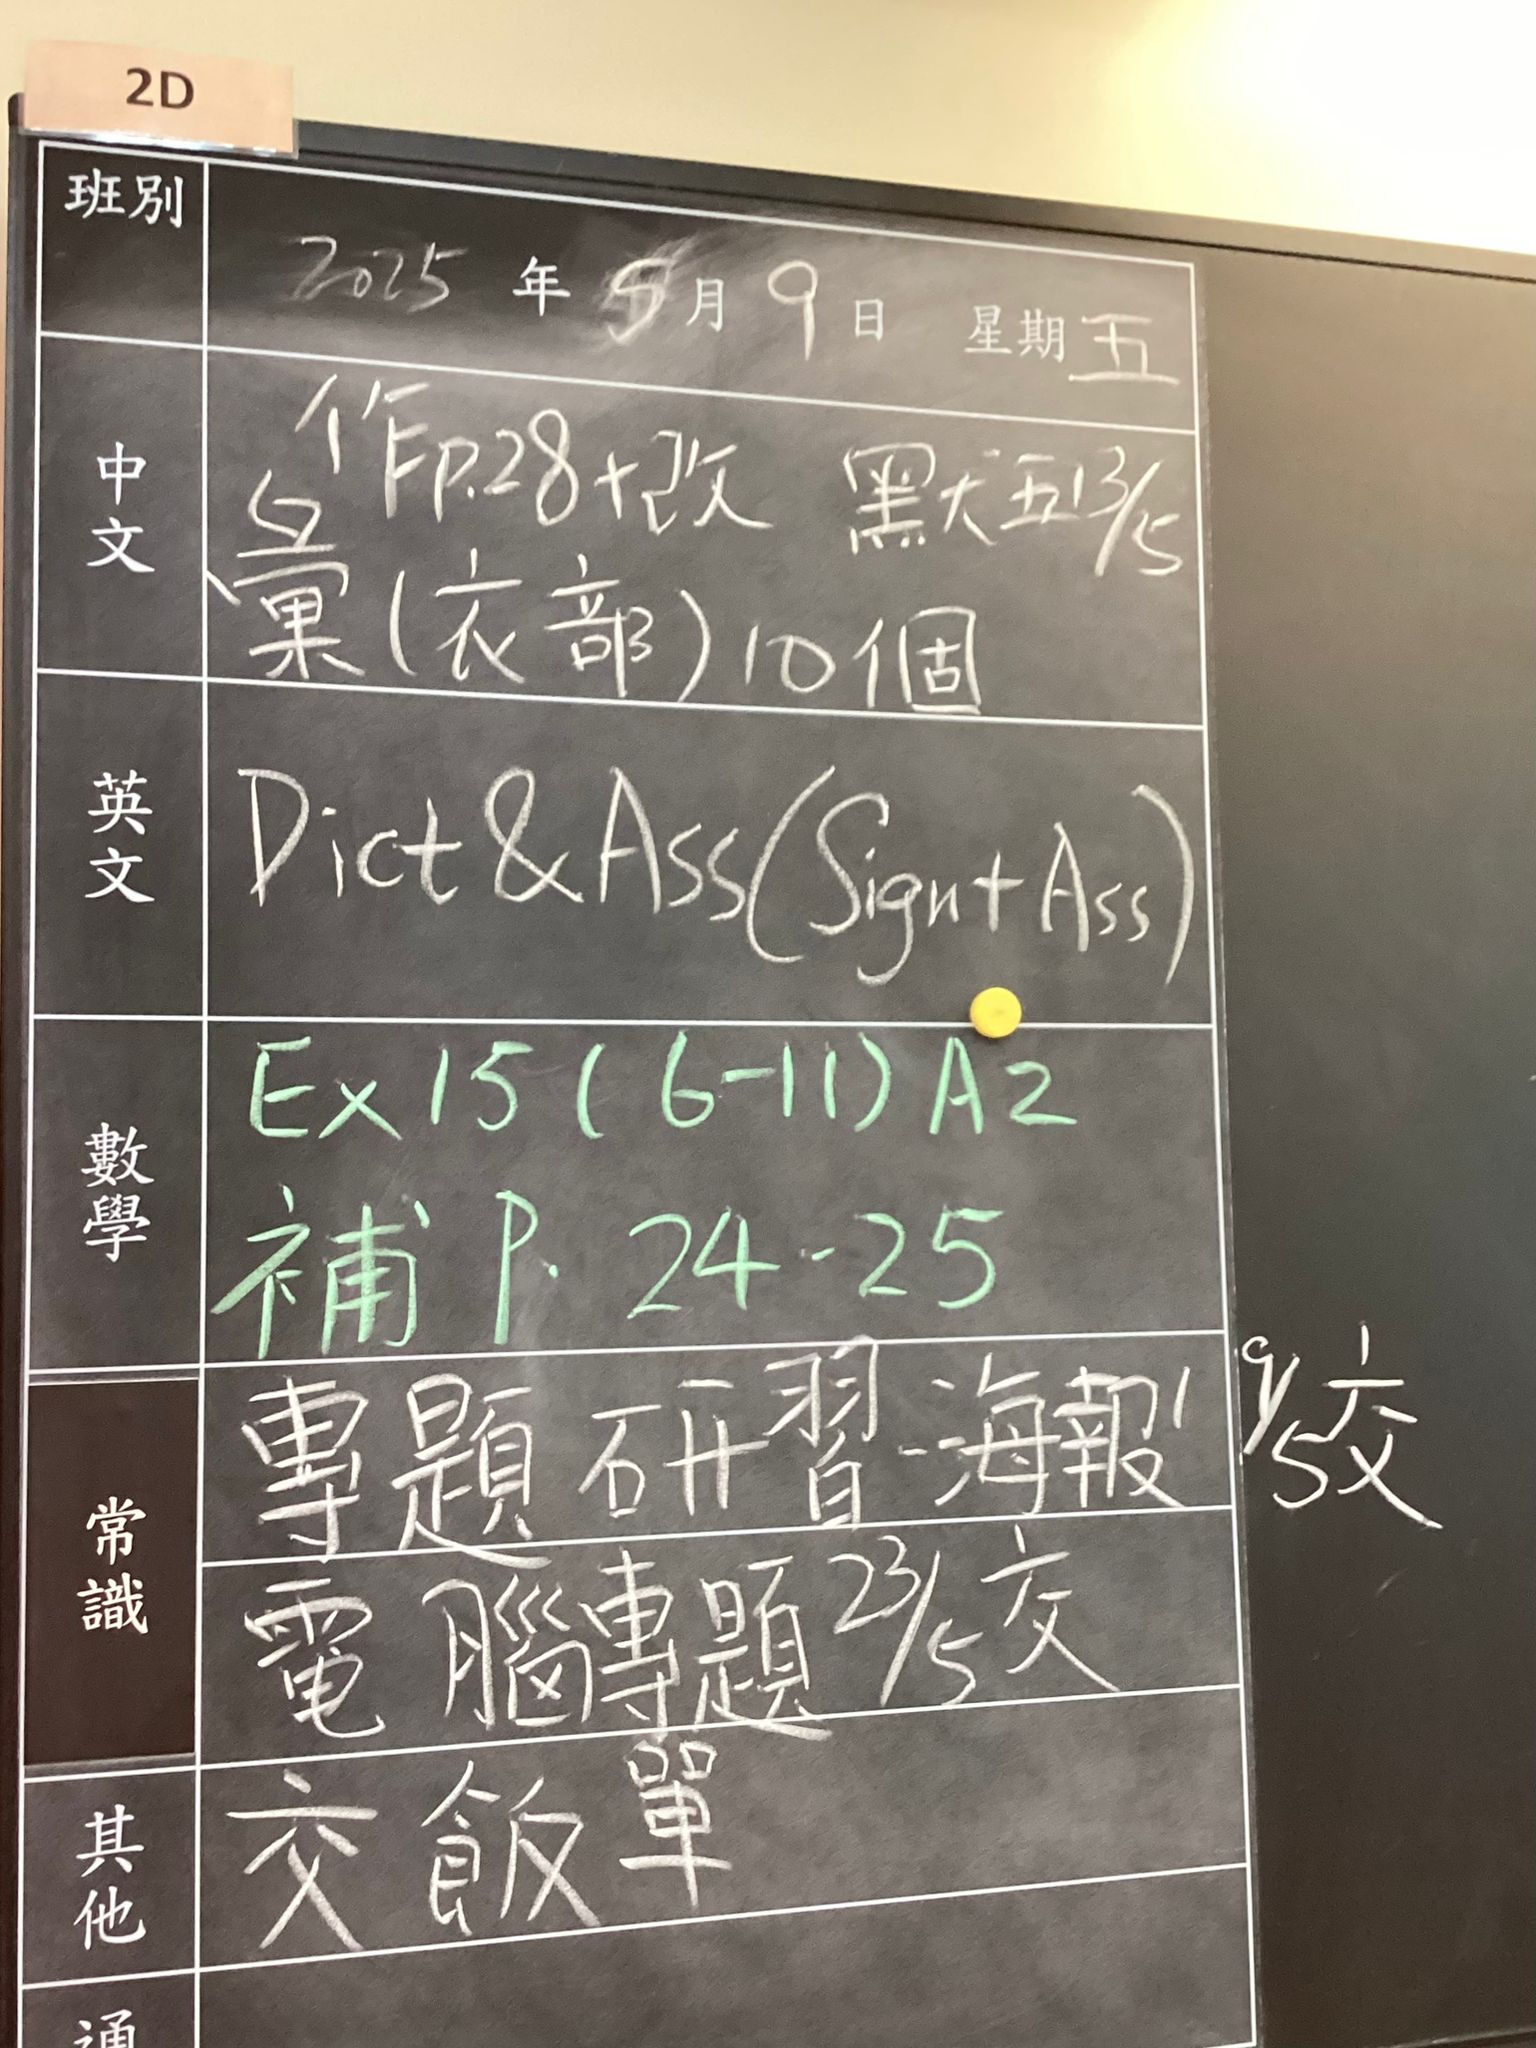 2D
班別
2025 年 5 月 9 日 星期 五
中文
作P.28+改 默五13/5
彙(衣部)10個
英文
Dict & Ass (Sign + Ass)
數學
Ex 15 (6-11) A2
補 P. 24-25
常識
專題研習-海報 9/5交
電腦專題 23/5交
其他
交飯單